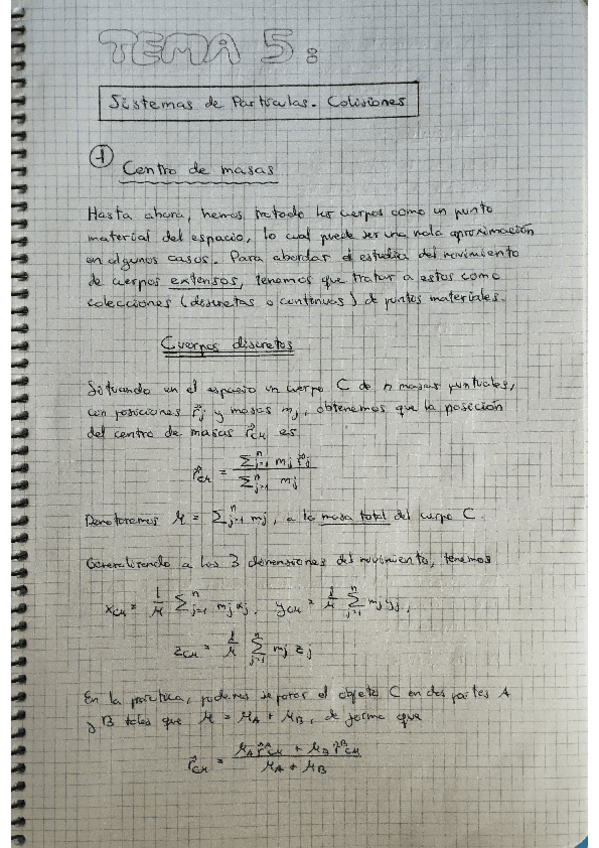 TEMA 5:
Sistemas de Partículas. Colisiones
1 Centro de masas
Hasta ahora, hemos tratado los cuerpos como un punto
material del espacio, lo cual puede ser una mala aproximación
en algunos casos. Para abordar el estudio del movimiento
de cuerpos extensos, tenemos que tratar a estos como
colecciones (discretas o continuas) de puntos materiales.
Cuerpos discretos
Situando en el espacio un cuerpo C de n masas puntuales,
con posiciones r⃗j y masas mj, obtenemos que la posición
del centro de masas r⃗CM es
r⃗CM = ∑ⁿj=1 mj r⃗j / ∑ⁿj=1 mj
Denotaremos M = ∑ⁿj=1 mj, a la masa total del cuerpo C.
Generalizando a las 3 dimensiones del movimiento, tenemos
xCM = 1/M ∑ⁿj=1 mj xj, yCM = 1/M ∑ⁿj=1 mj yj,
zCM = 1/M ∑ⁿj=1 mj zj
En la práctica, podemos separar el objeto C en dos partes A
y B tales que M = MA + MB, de forma que
r⃗CM = MA r⃗ᴬCM + MB r⃗ᴮCM / MA + MB